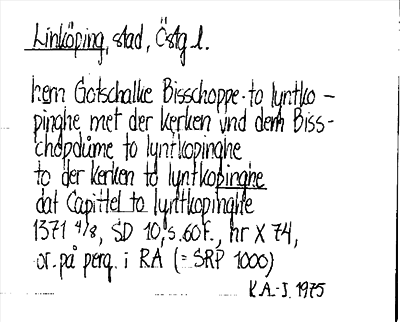 Linköping, stad, Östg l.
hern Gotschalke Bisschoppe to lyntko-
pinghe met der kerken vnd dem Biss-
chopdůme to lyntkopinghe
to der kerken to lyntkopinghe
dat Capittel to lyntkopinghe
1371 4/8, SD 10, s. 60 f., nr X 74,
or. på perg. i RA (= SRP 1000)
K.A.-J. 1975